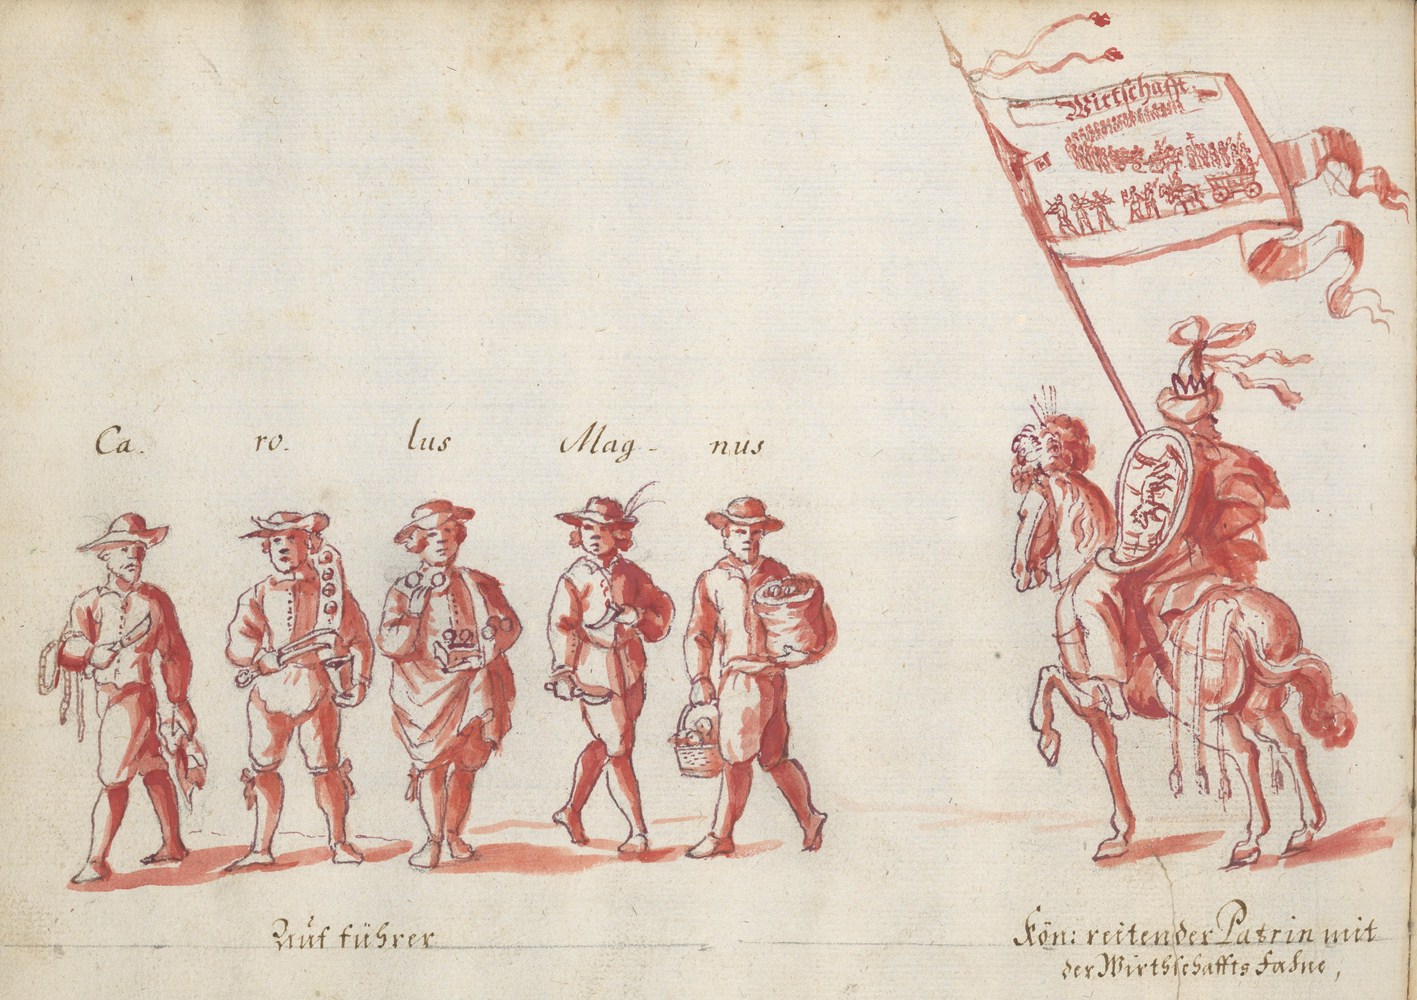 Wirtschafft.
Ca. ro. lus Mag- nus
Auf führer
Kön: reitender Patrin mit
der Wirthschaffts fahne,